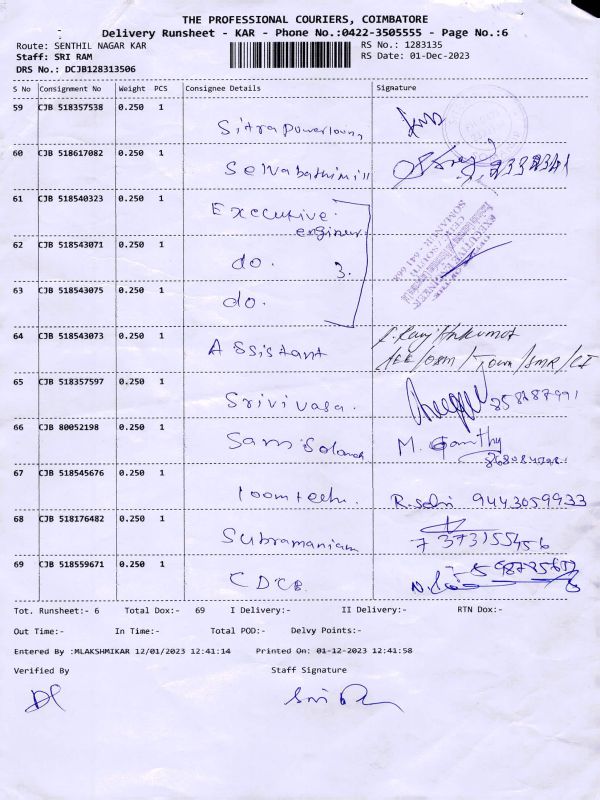 THE PROFESSIONAL COURIERS, COIMBATORE
Delivery Runsheet - KAR - Phone No.:0422-3505555 - Page No.:6
Route: SENTHIL NAGAR KAR RS No.: 1283135
Staff: SRI RAM RS Date: 01-Dec-2023
DRS No.: DCJB128313506
S No Consignment No Weight PCS Consignee Details Signature
59 CJB 518357538 0.250 1
Sitra powerloom,
60 CJB 518617082 0.250 1
Selvabathimill
61 CJB 518540323 0.250 1
Executive
engineer.
62 CJB 518543071 0.250 1
do. 3.
63 CJB 518543075 0.250 1
do.
64 CJB 518543073 0.250 1
Assistant
AEE/O&M/Town/SMR/
65 CJB 518357597 0.250 1
Srivivasa.
66 CJB 80052198 0.250 1
Sam Solar M.
67 CJB 518545676 0.250 1
loomtech. R. Selvi 9443059933
68 CJB 518176482 0.250 1
Subramaniam 7373155456
69 CJB 518559671 0.250 1
CDCB.
Tot. Runsheet:- 6 Total Dox:- 69 I Delivery:- II Delivery:- RTN Dox:-
Out Time:- In Time:- Total POD:- Delvy Points:-
Entered By :MLAKSHMIKAR 12/01/2023 12:41:14 Printed On: 01-12-2023 12:41:58
Verified By Staff Signature